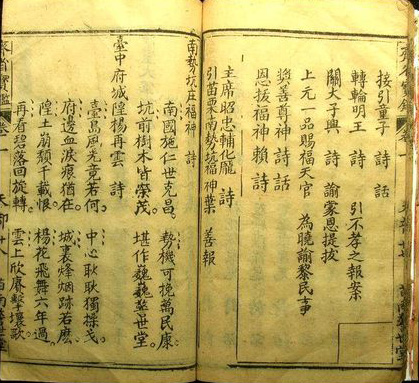 接引童子 詩 話
轉輪明王 詩 引不孝之報案
關大子輿 詩 諭蒙恩提拔
上元一品賜福天官 為曉諭黎民事
獎善尊神 詩 話
恩拔福神賴 詩
主席昭忠輔化龐 詩
引苗栗南勢坑福神葉 善報
南勢坑庄福神 詩
南國施仁世克昌 勢機可挽萬民康
坑前樹木皆榮茂 堪作巍巍在世堂
臺中府城隍楊再雲 詩
臺島風光竟若何 中心耿耿獨操戈
府邊血淚痕猶在 城裏烽烟跡若麼
隍土崩頹千載恨 楊花飛舞六年過
再看碧落回旋轉 雲上欣賡擊壤歌